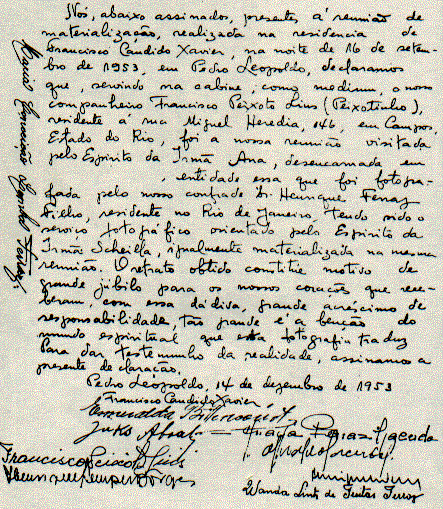 Nós, abaixo assinados, presentes á reunião de
materialização, realizada na residencia de
Francisco Candido Xavier, na noite de 16 de setem-
bro de 1953, em Pedro Leopoldo, declaramos
que, servindo na cabine, como medium, o nosso
companheiro Francisco Peixoto Lins (Peixotinho),
residente á rua Miguel Heredia, 146, em Campos,
Estado do Rio, foi a nossa reunião visitada
pelo Espirito da Irmã Ana, desencarnada em
, entidade essa que foi fotogra-
fada pelo nosso confrade Sr. Henrique Ferraz
Filho, residente no Rio de Janeiro, tendo sido o
serviço fotográfico orientado pelo Espirito da
Irmã Scheilla, igualmente materializada na mesma
reunião. O retrato obtido contitue motivo de
grande júbilo para os nossos corações que rece-
beram, com essa dádiva, grande acréscimo de
responsabilidade, tão grande é a benção do
mundo espiritual que esta fotografia traduz
Para dar testemunho da realidade, assinamos a
presente declaração.
Pedro Leopoldo, 14 de dezembro de 1953
Francisco Candido Xavier
Esmeralda Bittencourt
Francisco Peixoto Lins
Wanda Lins de Freitas